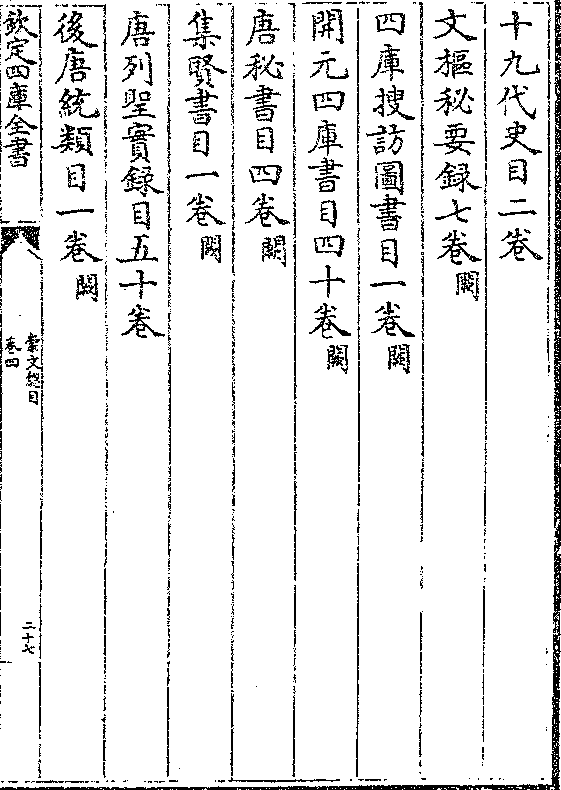 十九代史目二卷
文樞秘要録七卷闕
四庫搜訪圖書目一卷闕
開元四庫書目四十卷闕
唐秘書目四卷闕
集賢書目一卷闕
唐列聖實録目五十卷
後唐統類目一卷闕
欽定四庫全書
崇文總目
卷四
二十七